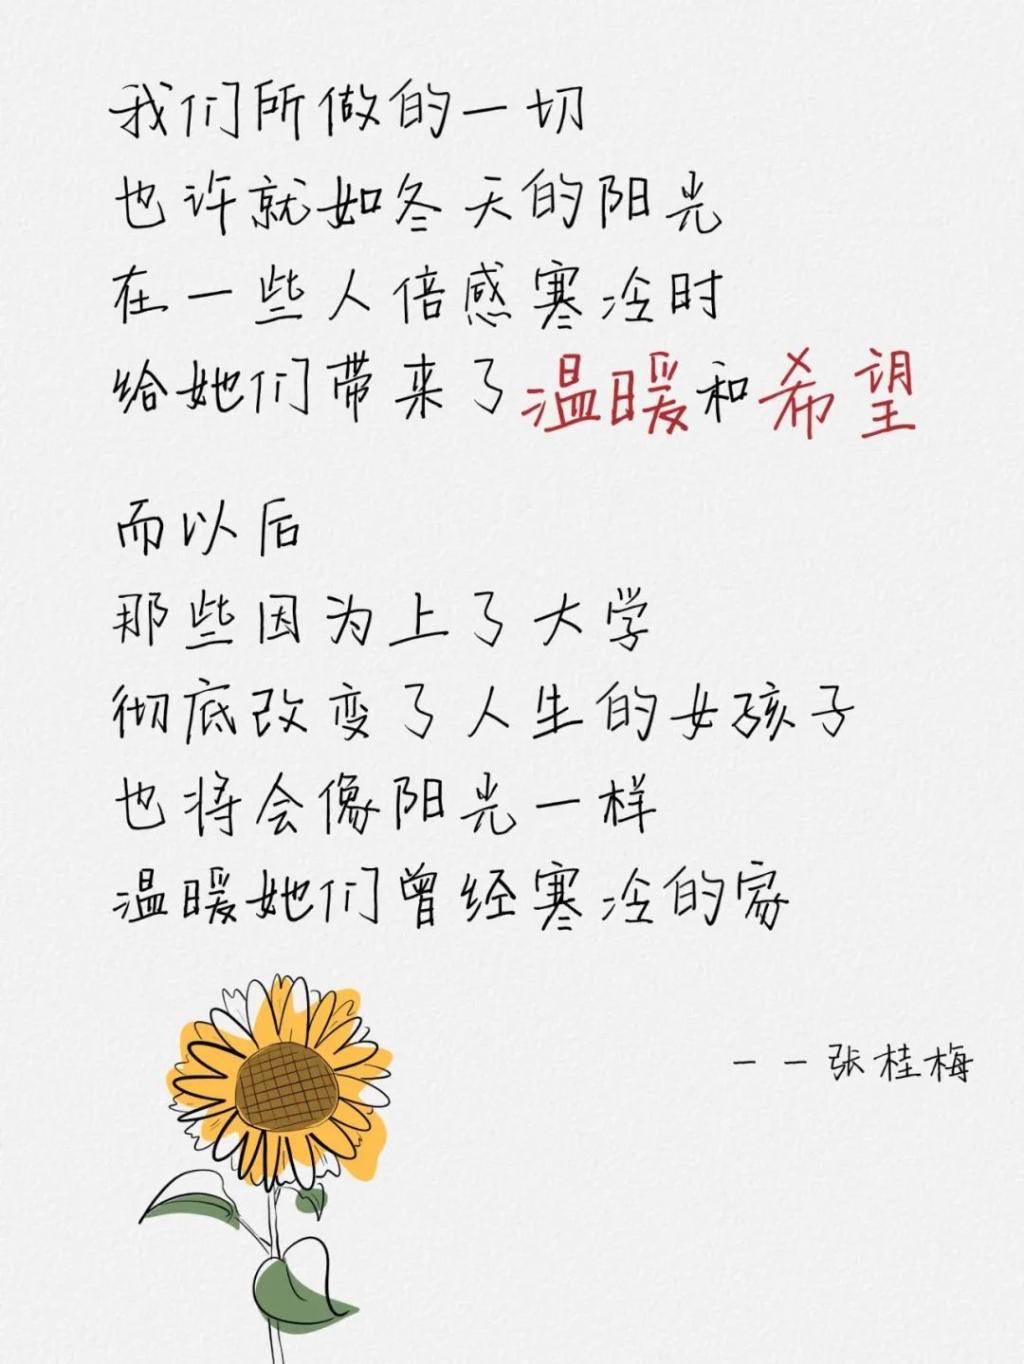 我们所做的一切
也许就如冬天的阳光
在一些人倍感寒冷时
给她们带来了温暖和希望
而以后
那些因为上了大学
彻底改变了人生的女孩子
也将会像阳光一样
温暖她们曾经寒冷的家
——张桂梅